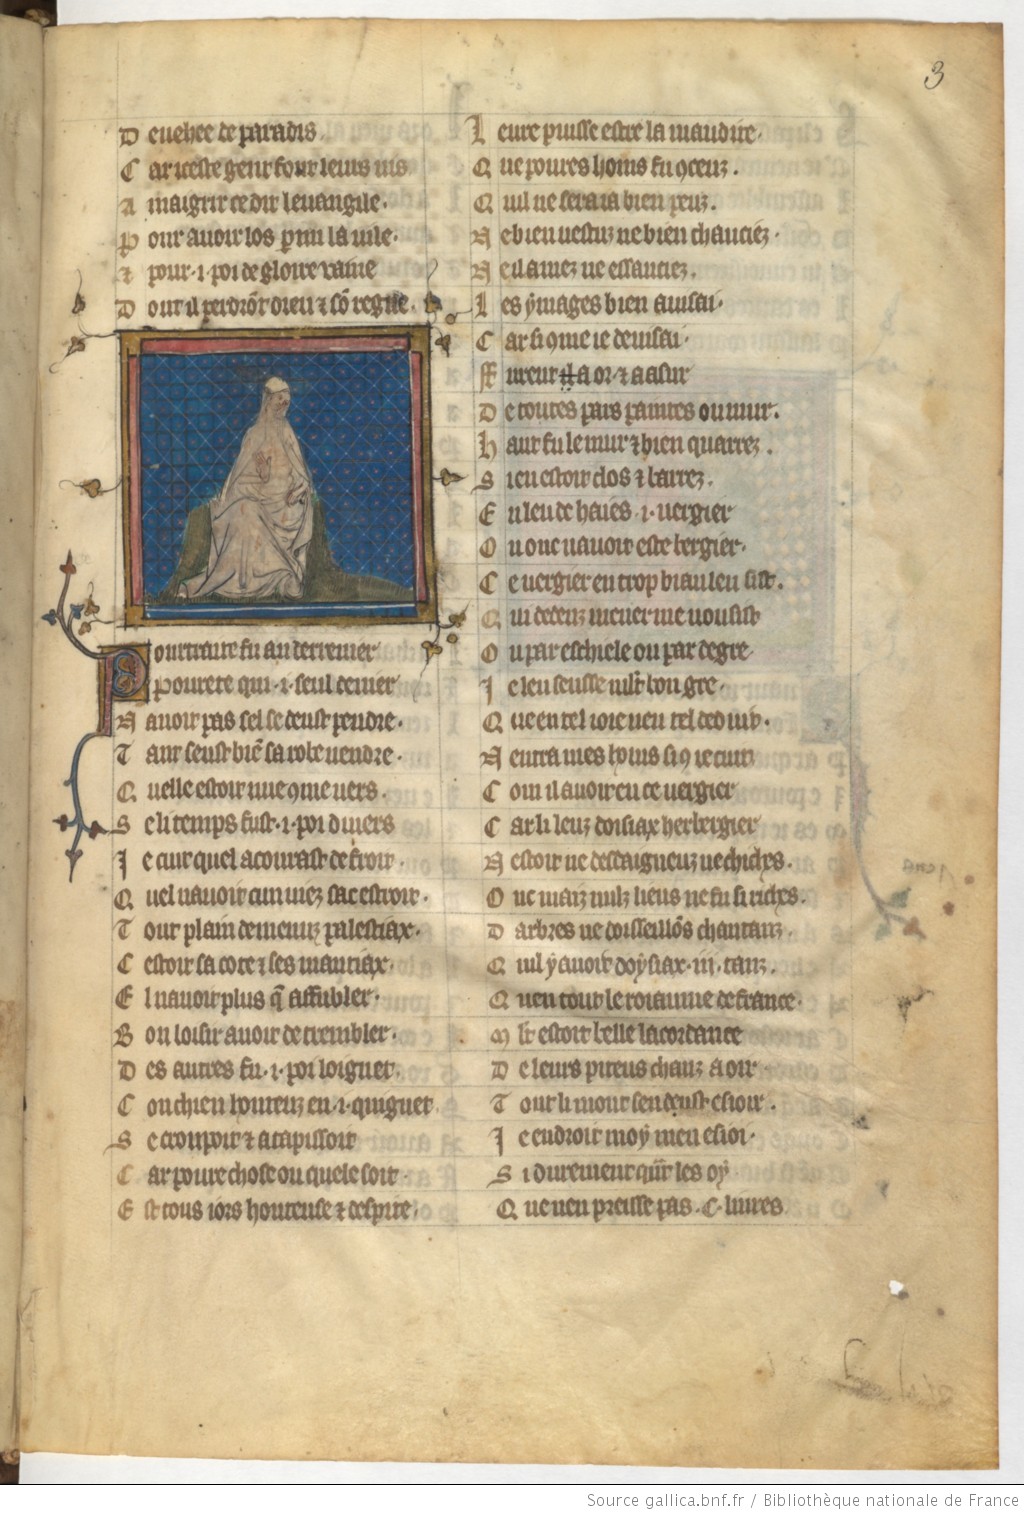 3
D eveher de paradis.
C ar iceste gent font leurs vis
A maigrir ce dit levangile.
P our avoir los pmi la vile.
⁊ pour .i. poi de gloire vaine
D ont il perdrōt dieu ⁊ sō regne.
P ourtraite fu au derrenier
P ourete qui .i. seul denier
N avoit pas sel se deust pendre.
T ant seust biē sa robe vendre.
Q uelle estoit nue 9me vers.
S e li temps fust .i. poi divers
J e cuit quel acourast de froit.
Q uel navoit cun viez sac estroit.
T out plain de menuz palestiax.
C estoit sa cote ⁊ ses mantiax.
E l navoit plus q̄ affubler.
B on loisir avoit de trembler.
D es autres fu .i. poi loignet.
C on chien honteuz en .i. quignet
S e cropoit ⁊ atapissoit
C ar poure chose ou quele soit.
E st tous iors honteuse ⁊ despite.
L eure puisse estre la maudite.
Q ue poures homs fu 9ceuz.
Q uil ne sera ia bien peuz.
N e bien vestuz ne bien chauciez.
N e il amez ne essauciez.
L es ymages bien avisai.
C ar si 9me ie devisai.
F urent a or ⁊ a asur
D e toutes pars paintes ou mur.
H aut fu le mur ⁊ bien quarrez.
S i en estoit clos ⁊ barrez.
E n leu de haies .i. vergier
O u onc navoit este bergier.
C e vergier en trop biau leu sist.
Q ui dedenz mener me vousist
O u par eschiele ou par degre.
J e len seusse mlt bon gre.
Q ue en tel ioie ne tel deduit.
N entra mes homs si 9 ie cuit
C om il avoit en ce vergier
C ar li leuz doisiax herbergier
N estoit ne desdaigneuz ne chiches.
O nc maiz nulz lieus ne fu si riches.
D arbres ne doisseillōs chantanz.
Q uil y avoit doysiax .iii. tanz.
Q uen tout le roiaume de france.
M lt estoit belle lacordance
D e leurs piteus chanz a oir
T out li mont sen deust esioir.
J e endroit moy men esioi.
S i durement quāt les oy
Q ue nen preisse pas .C. livres
Source gallica.bnf.fr / Bibliothèque nationale de France